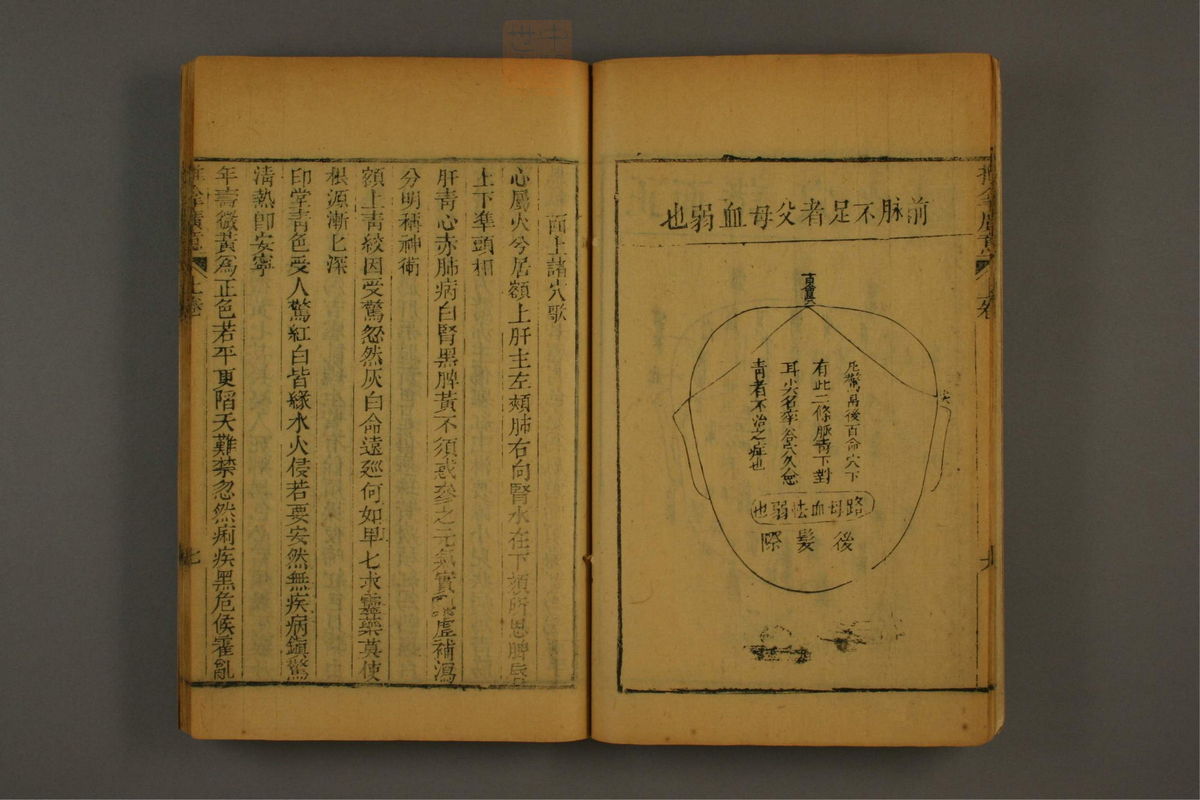 前脉不足者父母血弱也
百會穴
凡驚馬後百命穴下
有此二條脈青下對
耳尖名率谷穴久愈
青者不治之症也
路母血怯弱也
後髮際
上卷
面上諸穴歌
心屬火兮居額上肝主左頰肺右向腎水在下頦所思脾
上下準頭相
肝青心赤肺病白腎黑脾黃不須惑參之元氣實虛補瀉
分明稱神術
額上青紋因受驚忽然灰白命遠延何如早七求靈藥莫使
根源漸匕深
印堂青色受人驚紅白皆緣水火侵若要安然無疾病鎮驚
清熱卽安寧
年壽微黃為正色若平更陷夭難禁忽然痢疾黑危候霍亂
上卷
七